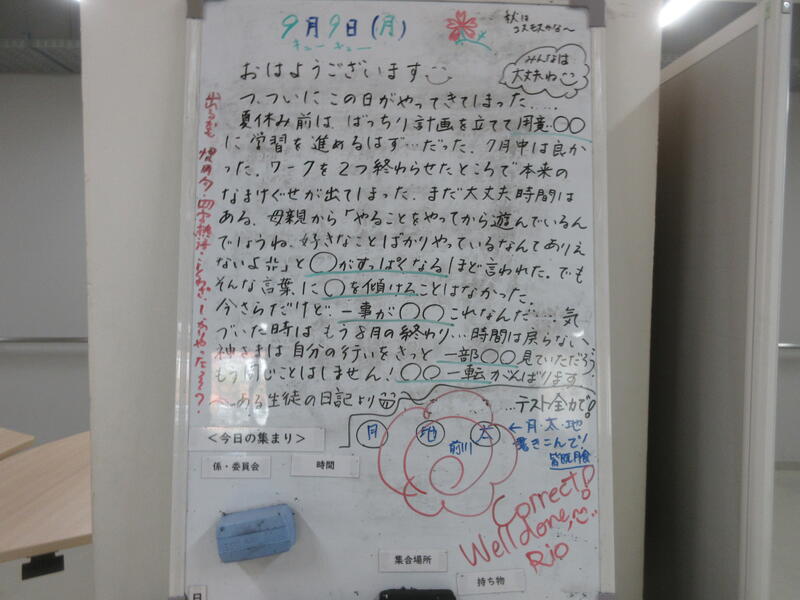 9月9日(月)
キュー キュー
秋は
コスモスかな～
みんなは
大丈夫ね
おはようございます
つ、ついにこの日がやってきてしまった……
夏休み前は、ばっちり計画を立てて用意○○
に学習を進めるはず…だった。7月中は良か
った。ワークを2つ終わらせたところで本来の
なまけぐせが出てしまった。まだ大丈夫時間は
ある。母親から「やることをやってから遊んでいるん
でしょうね。好きなことばかりやっているなんてありえ
ないよ」と○がすっぱくなるほど言われた。でも
そんな言葉に○を傾けることはなかった。
今さらだけど…一事が○○これなんだ…。気
づいた時はもう8月の終わり…時間は戻らない、
神さまは自分の行いをきっと一部○○見ていただろう
もう同じことはしません！○○一転がんばります
～ある生徒の日記より
…テスト全力で！
出るかも
四字熟語・ことわざ・しっかりやったそう？
<今日の集まり>
月
地
太
前川
←月・太・地
書きこんで！
皆既月食
係・委員会
時間
Correct!
Well done,
Rio
集合場所
持ち物
日